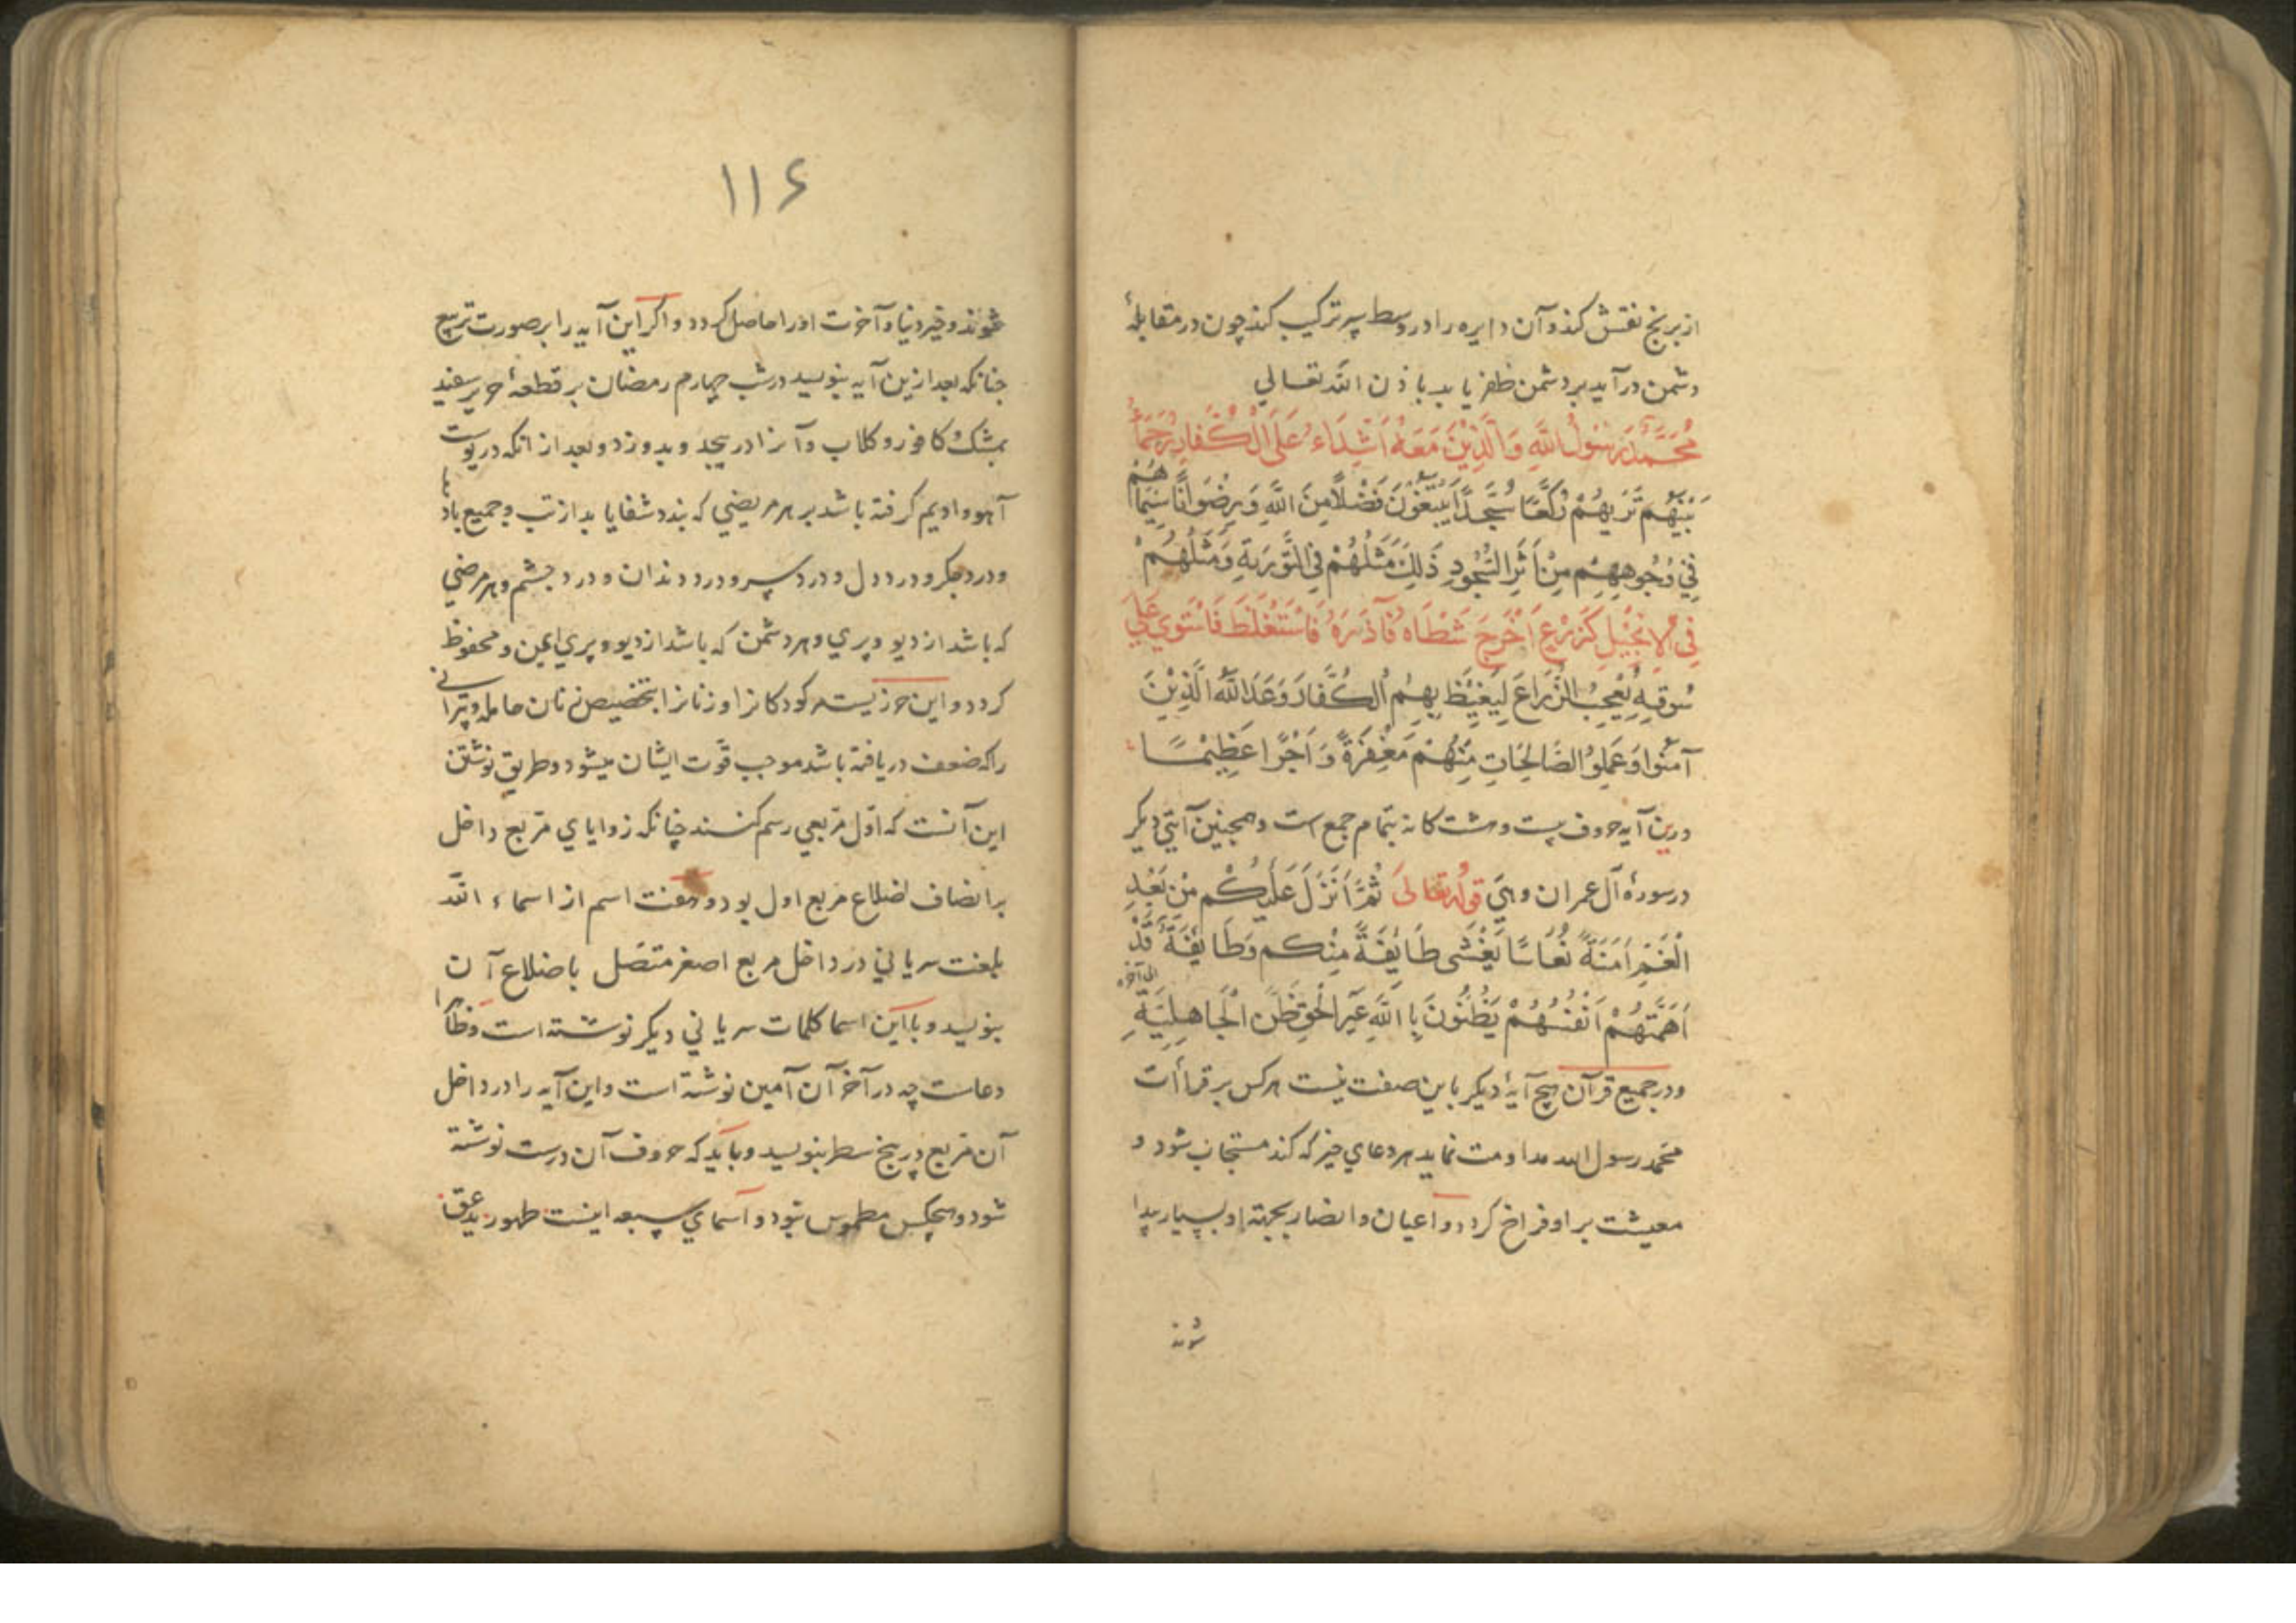 از برنج نقش کند و آن دایره را در وسط سپر ترکیب کند چون در مقابلهٔ
دشمن درآید بر دشمن ظفر یابد باذن الله تعالی
مُحَمَّدٌ رَسُولُ اللَّهِ وَالَّذِيْنَ مَعَهُ اَشِدَّاءُ عَلَى الْكُفَّارِ رُحَمَاءُ
بَيْنَهُمْ تَرٰيهُمْ رُكَّعًا سُجَّدًا يَبْتَغُوْنَ فَضْلًا مِنَ اللَّهِ وَرِضْوَانًا سِيْمَاهُمْ
فِي وُجُوهِهِمْ مِنْ اَثَرِ السُّجُودِ ذَلِكَ مَثَلُهُمْ فِي التَّوْرَيةِ وَمَثَلُهُمْ
فِي الْاِنْجِيْلِ كَزَرْعٍ اَخْرَجَ شَطْاَهُ فَآزَرَهُ فَاسْتَغْلَظَ فَاسْتَوي عَلَي
سُوقِهِ يُعْجِبُ الزُّرَّاعَ لِيَغِيْظَ بِهِمُ الْكُفَّارَ وَعَدَ اللَّهُ الَّذِيْنَ
آمَنُوا وَعَمِلُوا الصَّالِحَاتِ مِنْهُمْ مَغْفِرَةً وَاَجْرًا عَظِيْمًا
درین آیه حروف بیست و هشت کانه بتمام جمع است و همچنین آیتی دیکر
در سورهٔ آل عمران وهی قوله تعالی ثُمَّ اَنْزَلَ عَلَيْكُمْ مِنْ بَعْدِ
الْغَمِّ اَمَنَةً نُعَاسًا يَغْشَى طَايِفَةً مِنْكم وَطَايِفَةٌ قَدْ
اَهَمَّتْهُمْ اَنْفُسُهُمْ يَظُنُّونَ بِاللَّهِ غَيْرَ الْحَقِّ ظَنَّ الْجَاهِلِيَّةِ الی آخره
و در جمیع قرآن هیچ آیهٔ دیکر باین صفت نیست هر کس بر قرائت
محمد رسول الله مداومت نماید هر دعای خیر که کند مستجاب شود و
معیشت بر او فراخ کردد و اعیان و انصار بجهة او بسیار پیدا
شوند
۱۱۶
شوند و خیر دنیا و آخرت او را حاصل کردد و اکر این آیه را بر صورت تربیع
چنانکه بعد ازین آیه بنویسد در شب چهارم رمضان بر قطعهٔ حریر سفید
بمشک و کافور و کلاب و آنرا درپیچد و بدوزد و بعد از آنکه در پوست
آهو و ادیم کرفته باشد بر هر مریضی که بندد شفا یابد از تب و جمیع بادها
و درد جکر و درد دل و درد سر و درد دندان و درد چشم و هر مرضی
که باشد از دیو و پری و هر دشمن که باشد از دیو و پری ایمن و محفوظ
کردد و این حرزیست مر کودکانرا و زنانرا بتخصیص زنان حامله و پیرانی
را که ضعف دریافته باشد موجب قوّت ایشان میشود و طریق نوشتن
این آنست که اول مربعی رسم کنند چنانکه زوایای مربع داخل
بر انصاف اضلاع مربع اول بود و هفت اسم از اسماء الله
بلغت سریانی در داخل مربع اصغر متصل باضلاع آن
بنویسد و با این اسما کلمات سریانی دیکر نوشته است و ظاهرا
دعاست چه در آخر آن آمین نوشته است و این آیه را در داخل
آن مربع در پنج سطر بنویسد و باید که حروف آن درست نوشته
شود و هیچکس مطموس نبود و اسمای سبعه اینست طهور بدعق